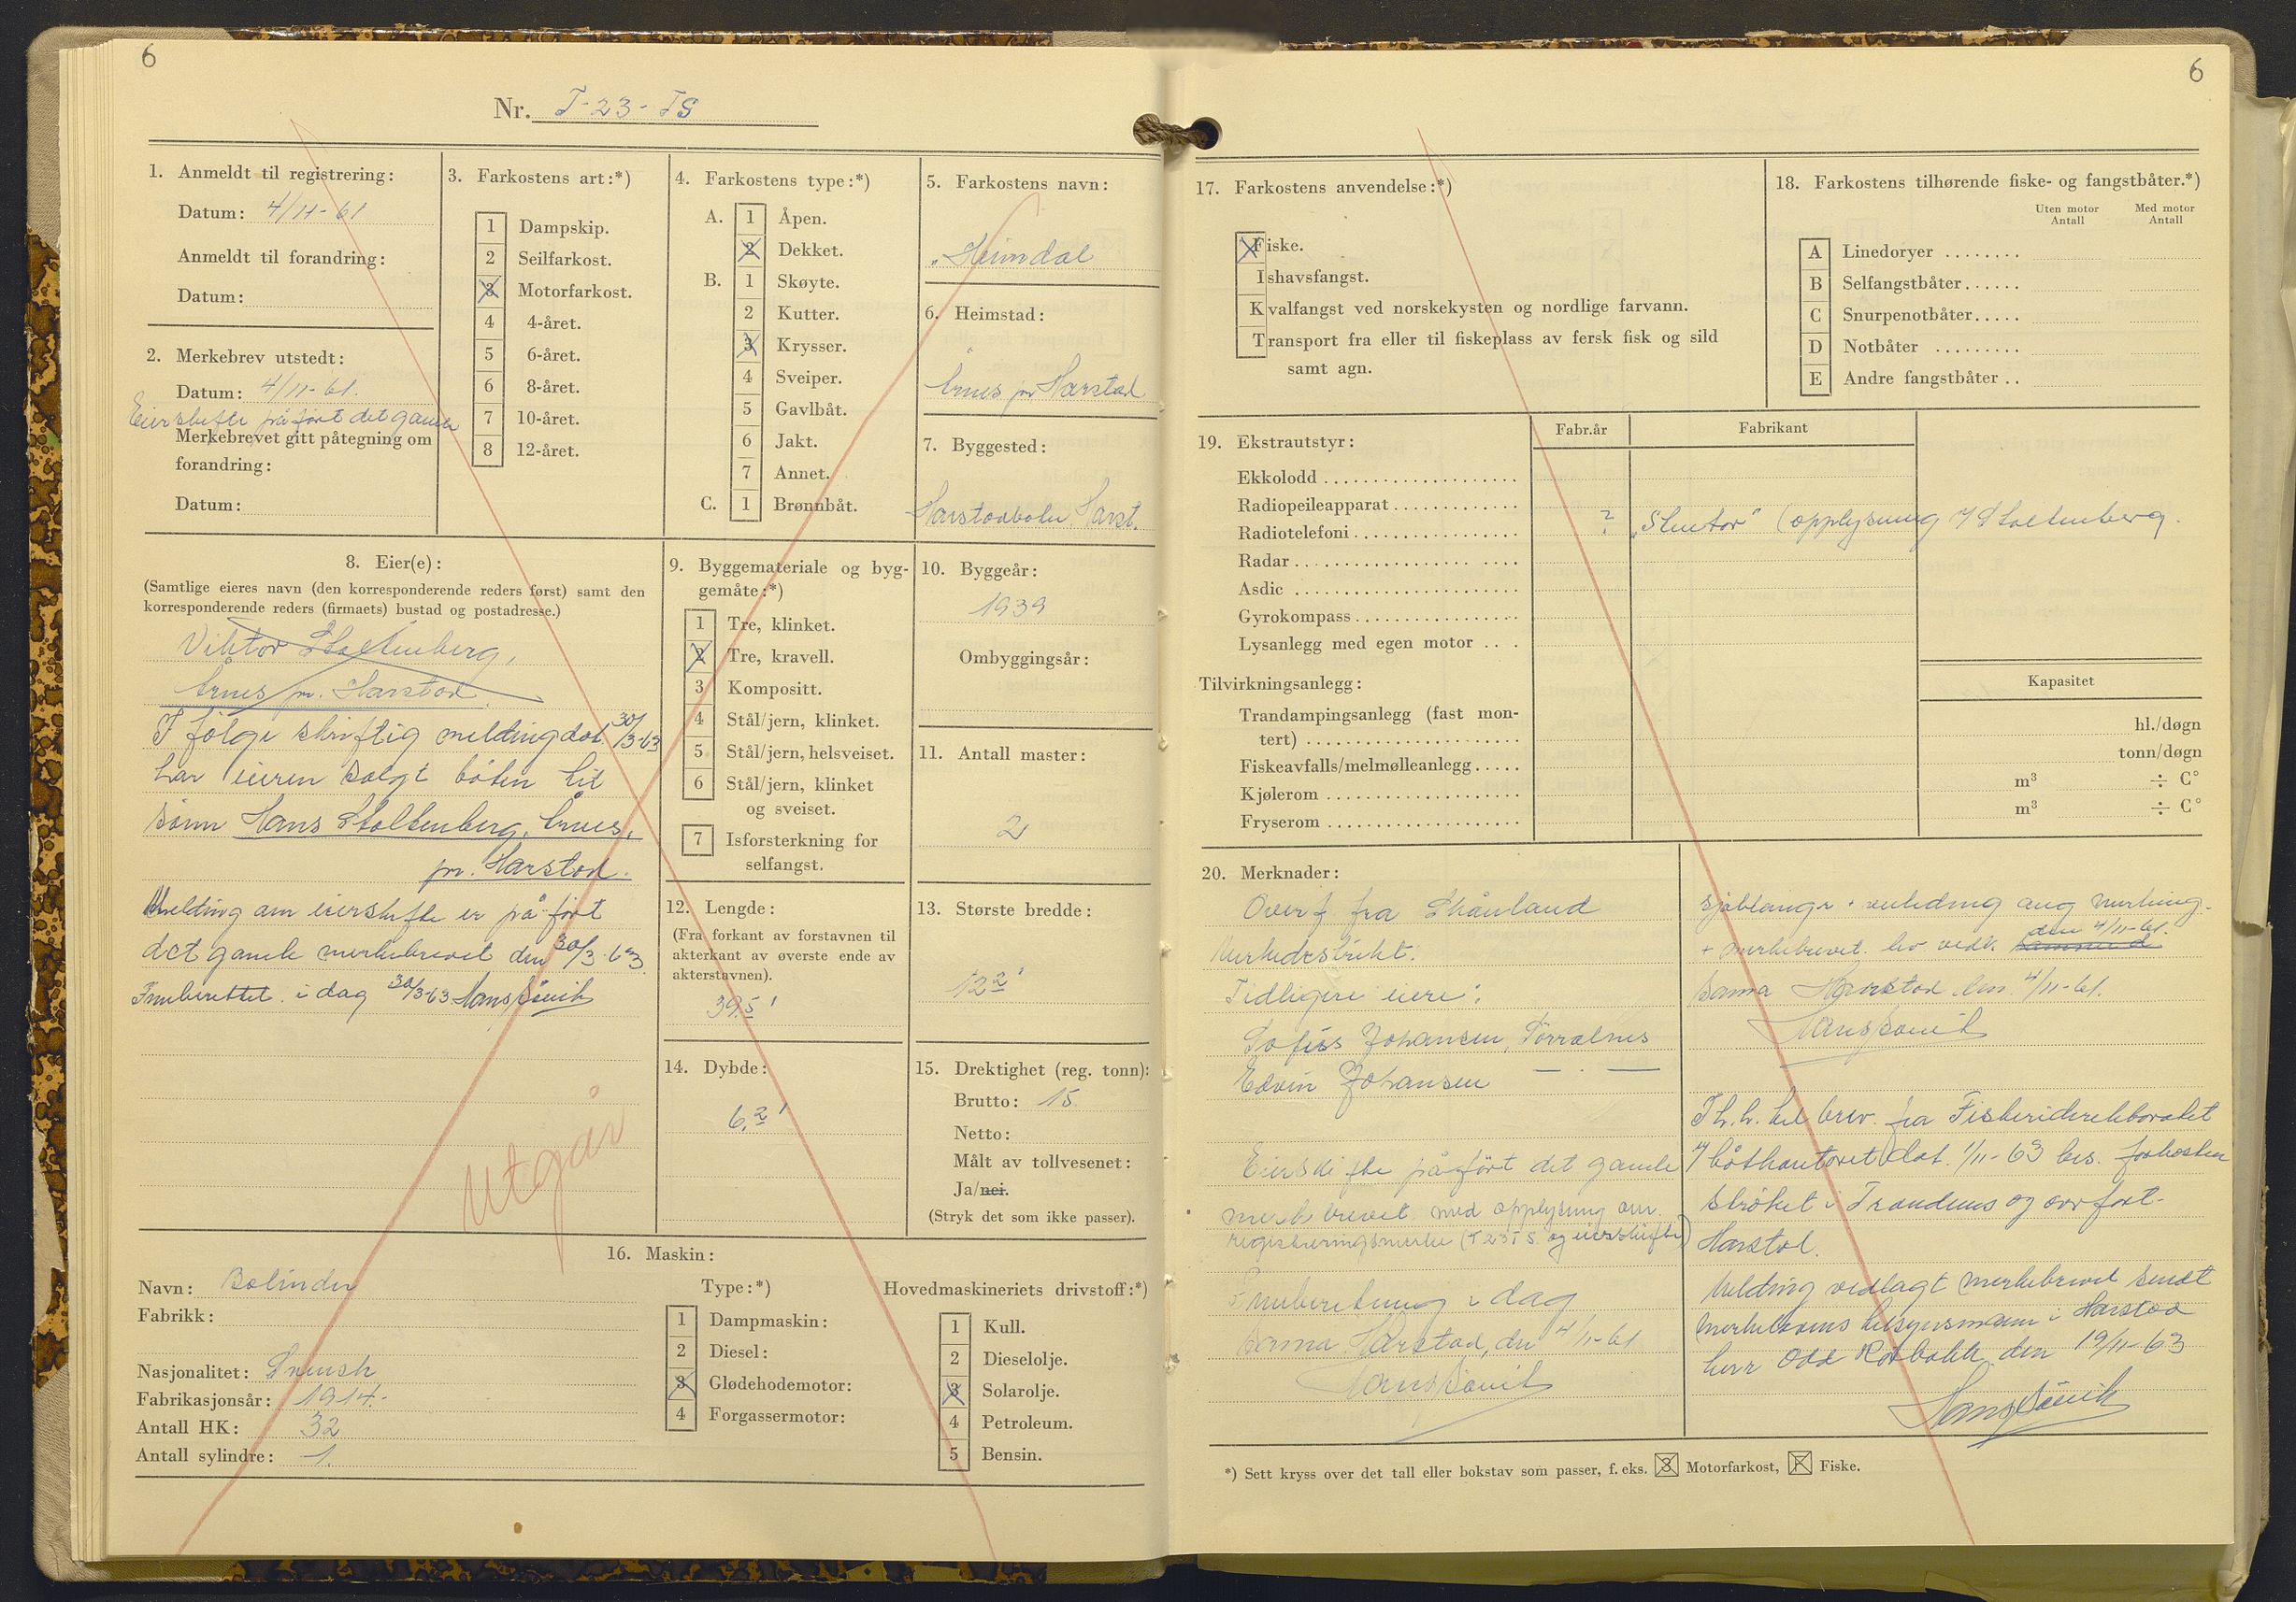 6
Nr. T-23-TS
1. Anmeldt til registrering:
Datum: 4/11-61
Anmeldt til forandring:
Datum:
2. Merkebrev utstedt:
Datum: 4/11-61.
Eierskifte påført det gamle
Merkebrevet gitt påtegning om
forandring:
Datum:
3. Farkostens art:*)
1 Dampskip.
2 Seilfarkost.
3 Motorfarkost.
4 4-året.
5 6-året.
6 8-året.
7 10-året.
8 12-året.
4. Farkostens type:*)
A. 1 Åpen.
2 Dekket.
B. 1 Skøyte.
2 Kutter.
3 Krysser.
4 Sveiper.
5 Gavlbåt.
6 Jakt.
7 Annet.
C. 1 Brønnbåt.
5. Farkostens navn:
"Heimdal
6. Heimstad:
Årnes pr Harstad
7. Byggested:
Harstadboln Harst.
8. Eier(e):
(Samtlige eieres navn (den korresponderende reders først) samt den
korresponderende reders (firmaets) bustad og postadresse.)
Viktor Stoltenberg,
Årnes pr. Harstad.
I følge skriftlig melding dat. 30/3-63
har eieren solgt båten til
sønn Hans Stoltenberg, Årnes,
pr. Harstad.
Melding om eierskifte er påført
det gamle merkebrevet den 30/3-63.
Innberettet i dag 30/3-63 Hans Søvik
Utgår
9. Byggemateriale og byg-
gemåte:*)
1 Tre, klinket.
2 Tre, kravell.
3 Kompositt.
4 Stål/jern, klinket.
5 Stål/jern, helsveiset.
6 Stål/jern, klinket
og sveiset.
7 Isforsterkning for
selfangst.
10. Byggeår:
1939
Ombyggingsår:
11. Antall master:
2
12. Lengde:
(Fra forkant av forstavnen til
akterkant av øverste ende av
akterstavnen).
39,5'
13. Største bredde:
12 2'
14. Dybde:
6,2'
15. Drektighet (reg. tonn):
Brutto: 15
Netto:
Målt av tollvesenet:
Ja/nei.
(Stryk det som ikke passer).
16. Maskin:
Navn: Bolinder
Fabrikk:
Nasjonalitet: Svensk
Fabrikasjonsår: 1914.
Antall HK: 32
Antall sylindre: 1.
Type:*)
1 Dampmaskin:
2 Diesel:
3 Glødehodemotor:
4 Forgassermotor:
Hovedmaskineriets drivstoff:*)
1 Kull.
2 Dieselolje.
3 Solarolje.
4 Petroleum.
5 Bensin.
6
17. Farkostens anvendelse:*)
Fiske.
Ishavsfangst.
Kvalfangst ved norskekysten og nordlige farvann.
Transport fra eller til fiskeplass av fersk fisk og sild
samt agn.
18. Farkostens tilhørende fiske- og fangstbåter.*)
Uten motor Antall Med motor Antall
A Linedoryer
B Selfangstbåter
C Snurpenotbåter
D Notbåter
E Andre fangstbåter
19. Ekstrautstyr: Fabr.år Fabrikant
Ekkolodd
Radiopeileapparat
Radiotelefoni ? "Stentor" (opplysning v/ Stoltenberg.
Radar
Asdic
Gyrokompass
Lysanlegg med egen motor
Tilvirkningsanlegg: Kapasitet
Trandampingsanlegg (fast mon-
tert) hl./døgn
Fiskeavfalls/melmølleanlegg tonn/døgn
Kjølerom m³ ÷ C°
Fryserom m³ ÷ C°
20. Merknader:
Overf. fra Skånland
Merkedistrikt.
Tidligere eiere:
Johansen,
Edvin Johansen — . —
Eierskifte påført det gamle
merkebrevet med opplysning om
registreringsmerke (T 23 TS og eierskifte)
Innberetning i dag
Sama Harstad, den 4/11-61
Hans Søvik
Sjablonger + veiledning ang merking-
+ merkebrevet lev. vedk. den 4/11-61.
Sama Harstad den 4/11-61.
Hans Søvik
I h. h. til brev fra Fiskeridirektoratet
v/ båtkontoret dat. 1/11-63 bes. farkosten
strøket i Trondenes og overført
Harstad.
Melding vedlagt merkebrevet sendt
merkelovens tilsynsmann i Harstad
herr Odd Rotbakk den 19/11-63
Hans Søvik
*) Sett kryss over det tall eller bokstav som passer, f. eks. 3 Motorfarkost, F Fiske.